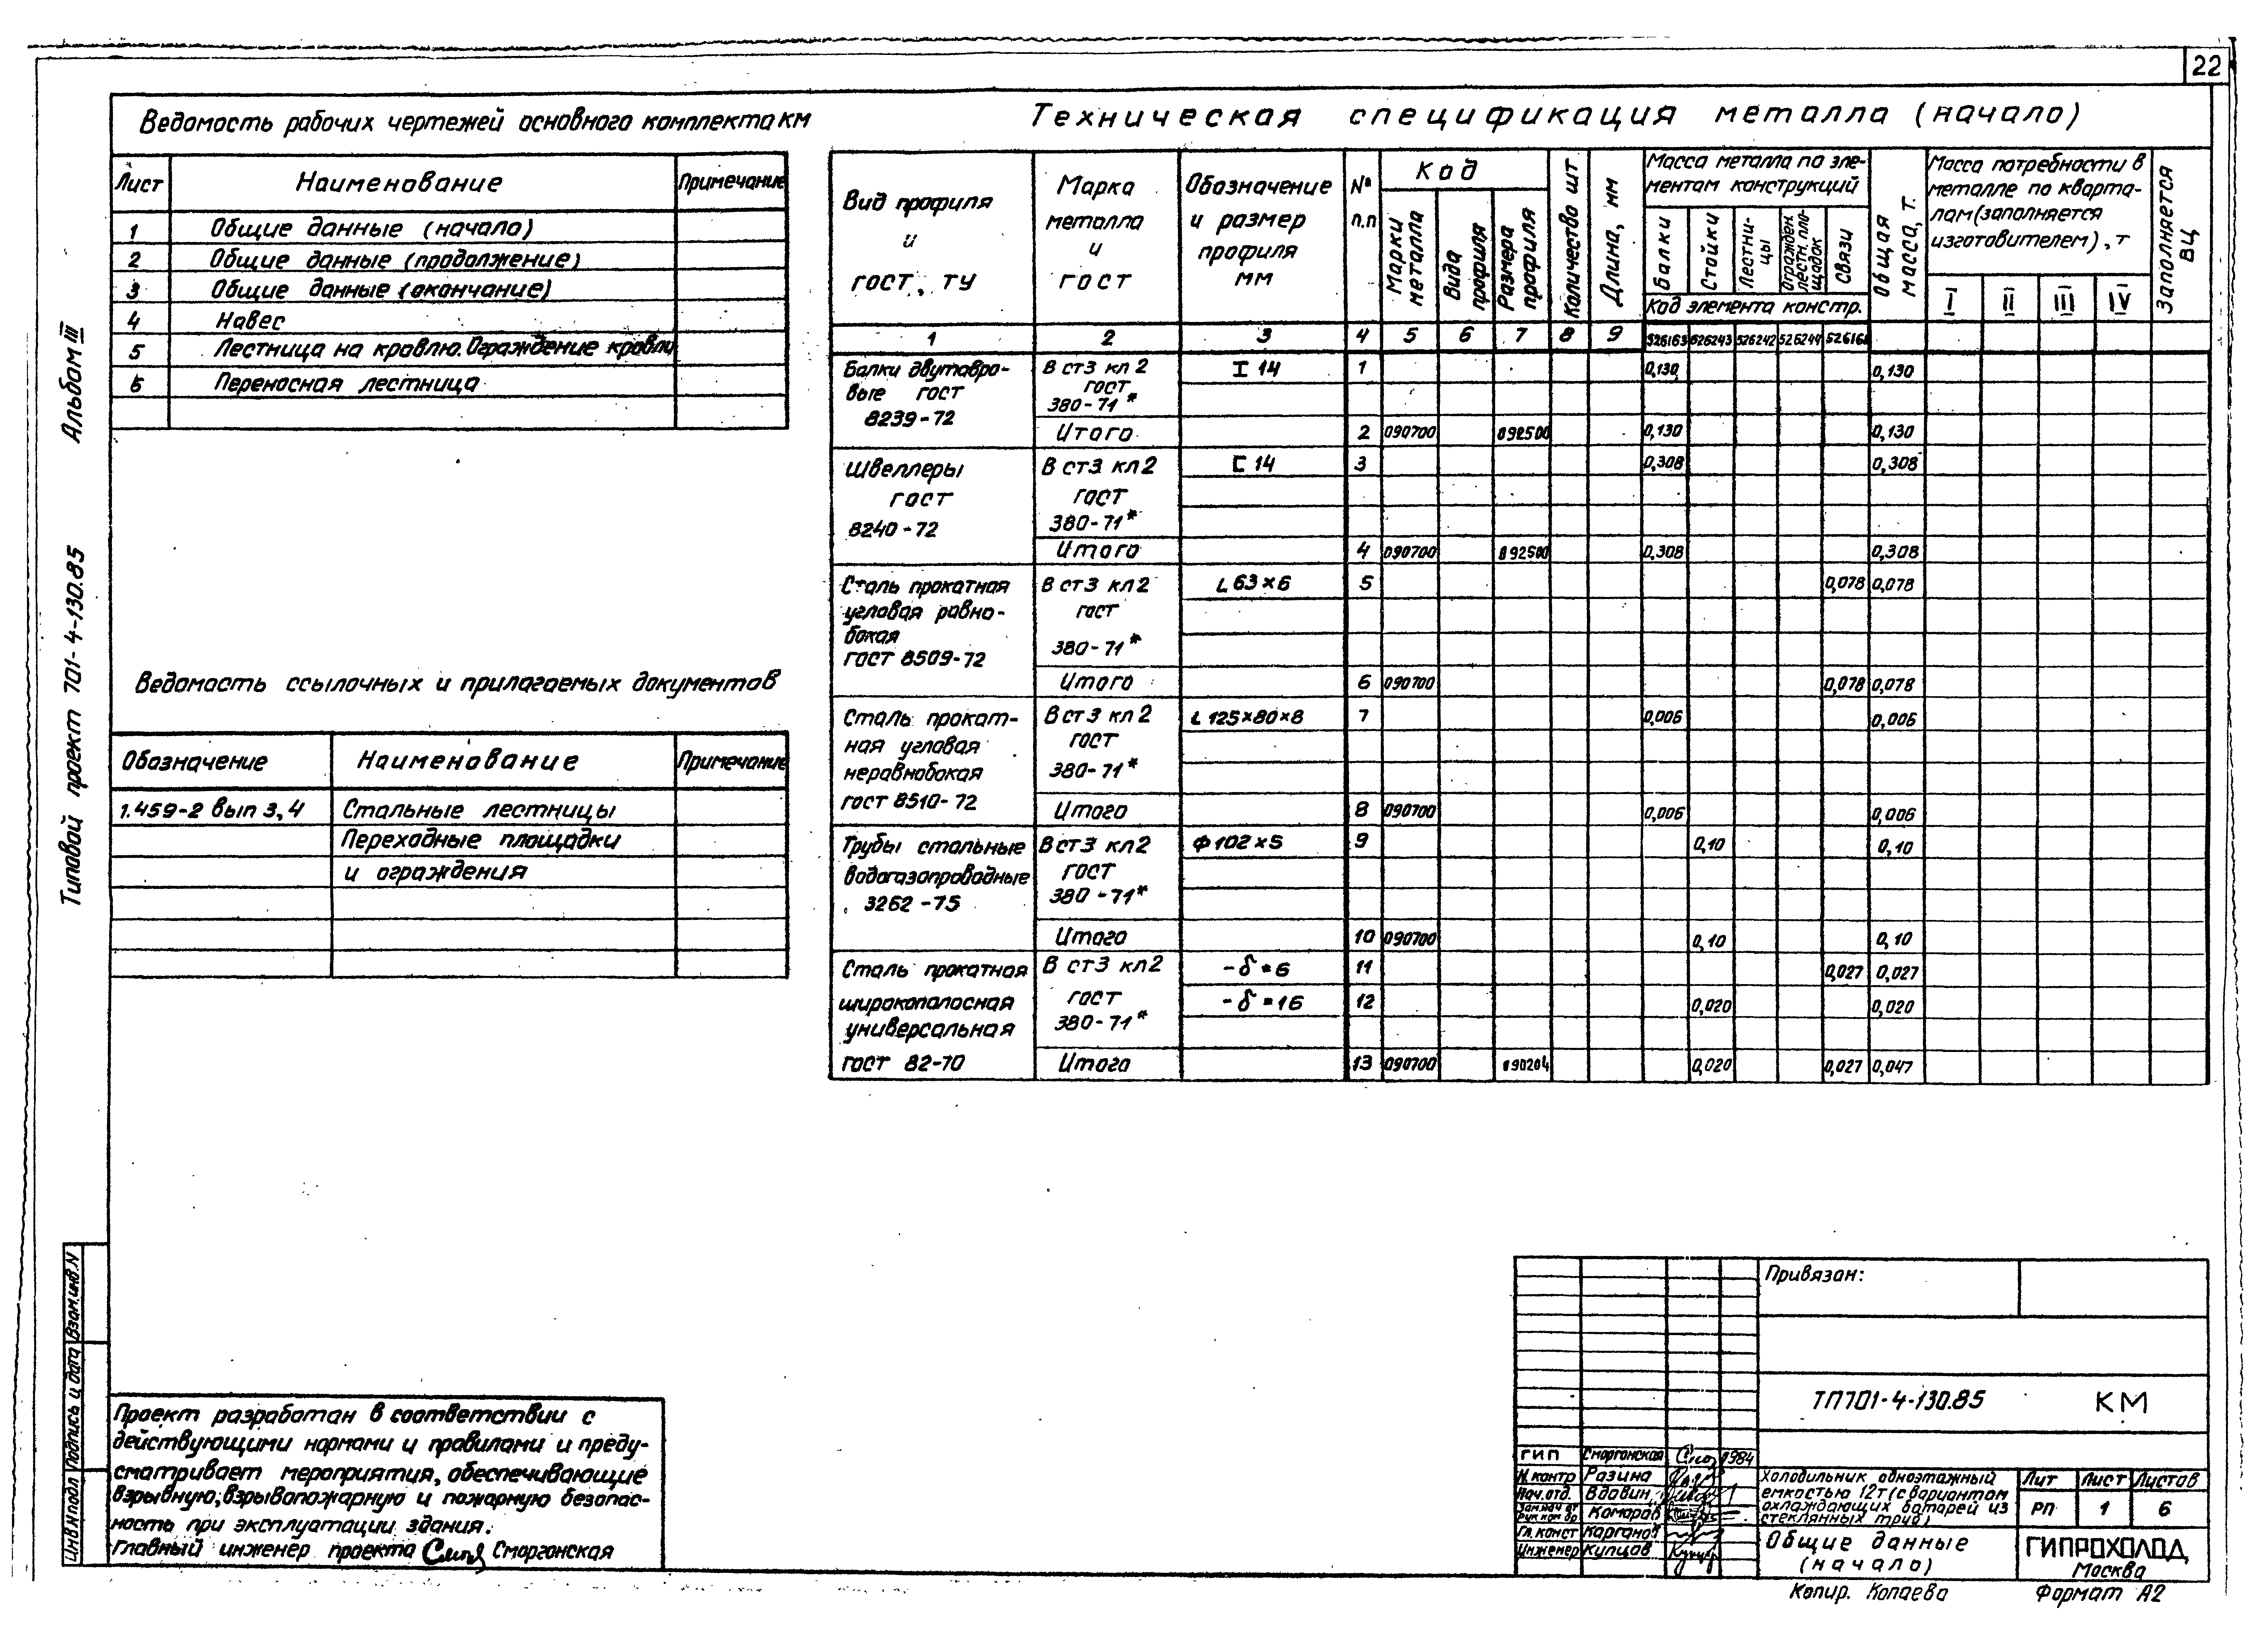 22
Ведомость рабочих чертежей основного комплекта КМ
Лист Наименование Примечание
1 Общие данные (начало)
2 Общие данные (продолжение)
3 Общие данные (окончание)
4 Навес
5 Лестница на кровлю. Ограждение кровли
6 Переносная лестница
Ведомость ссылочных и прилагаемых документов
Обозначение Наименование Примечание
1.459-2 вып 3,4 Стальные лестницы
Переходные площадки
и ограждения
Техническая спецификация металла (начало)
Вид профиля и ГОСТ, ТУ
Марка металла и ГОСТ
Обозначение и размер профиля мм
№ п.п
Код
Марки металла
Вида профиля
Размера профиля
Количество шт
Длина, мм
Масса металла по элементам конструкций
Балки
Стойки
Лестницы
Огражден. лестн. площадок
Связи
Код элемента констр.
Общая масса, т.
Масса потребности в металле по кварталам (заполняется изготовителем), т
I II III IV
Заполняется ВЦ
1 2 3 4 5 6 7 8 9 526163 526243 526242 526244 52616
Балки двутавро- В ст3 кл 2 I 14 1 0,130 0,130
вые ГОСТ ГОСТ
8239-72 380-71*
Итого 2 090700 092500 0,130 0,130
Швеллеры В ст3 кл2 [ 14 3 0,308 0,308
ГОСТ ГОСТ
8240-72 380-71*
Итого 4 090700 092500 0,308 0,308
Сталь прокатная В ст3 кл2 L 63×6 5 0,078 0,078
угловая равно- ГОСТ
бокая 380-71*
ГОСТ 8509-72
Итого 6 090700 0,078 0,078
Сталь прокат- В ст3 кл2 L 125×80×8 7 0,006 0,006
ная угловая ГОСТ
неравнобокая 380-71*
ГОСТ 8510-72 Итого 8 090700 0,006 0,006
Трубы стальные В ст3 кл2 Ф 102×5 9 0,10 0,10
водогазопроводные ГОСТ
3262-75 380-71*
Итого 10 090700 0,10 0,10
Сталь прокатная В ст3 кл2 -δ=6 11 0,027 0,027
широкополосная ГОСТ -δ=16 12 0,020 0,020
универсальная 380-71*
ГОСТ 82-70 Итого 13 090700 090204 0,020 0,027 0,047
Альбом III
Типовой проект 701-4-130.85
Взам.инв.N
Подпись и дата
Инв№подл
Проект разработан в соответствии с
действующими нормами и правилами и преду-
сматривает мероприятия, обеспечивающие
взрывную, взрывопожарную и пожарную безопас-
ность при эксплуатации здания.
Главный инженер проекта Сморгонская
Привязан:
ТП701-4-130.85 КМ
ГИП Сморгонская 1984
Н.контр Разина
Нач.отд. Вдовин
Комаров
Гл.конст Карганов
Инженер Купцов
Холодильник одноэтажный
емкостью 12т (с вариантом
охлаждающих батарей из
стеклянных труб)
Лит Лист Листов
РП 1 6
Общие данные
(начало)
ГИПРОХОЛОД
Москва
Копир. Копаева Формат А2